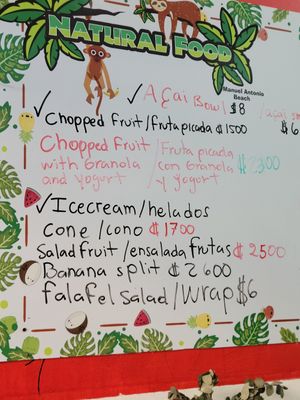 NATURAL FOOD
Manuel Antonio
Beach
✓ Açai Bowl $8 /açai
$6
✓ Chopped Fruit/fruta picada ₡1500
Chopped Fruit / Fruta picada
with Granola / con Granola ₡2300
and yogurt / y Yogurt
✓ Icecream/helados
Cone /cono ₡1700
Salad fruit /ensalada frutas ₡2500
Banana split ₡2600
falafel salad /wrap $6